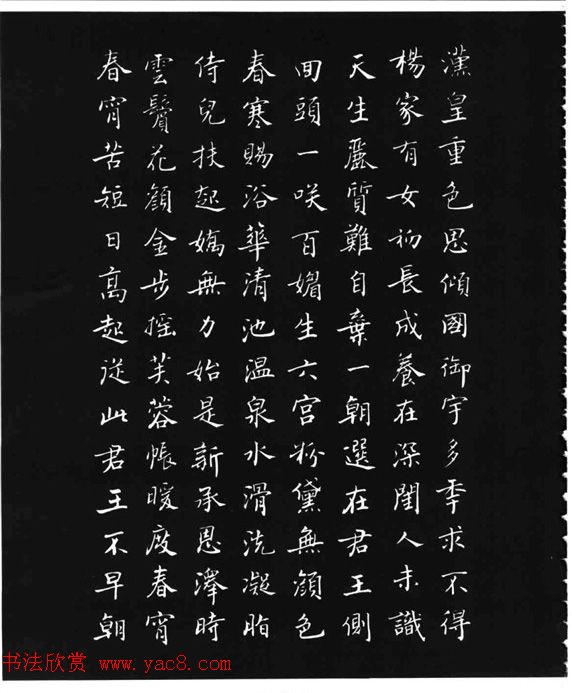 漢皇重色思傾國御宇多年求不得
楊家有女初長成養在深閨人未識
天生麗質難自棄一朝選在君王側
回頭一咲百媚生六宮粉黛無顏色
春寒賜浴華清池温泉水滑洗凝脂
侍兒扶起嬌無力始是新承恩澤時
雲鬢花顏金步摇芙蓉帳暖度春宵
春宵苦短日高起從此君王不早朝
书法欣赏 www.yac8.com